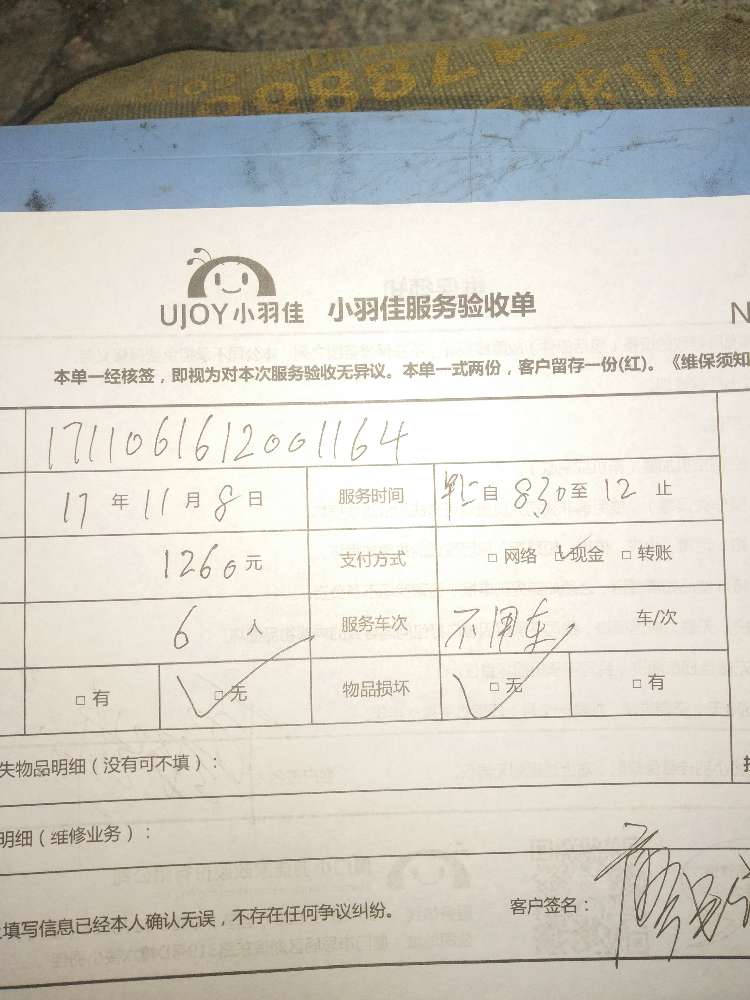 UJOY小羽佳 小羽佳服务验收单
N
本单一经核签，即视为对本次服务验收无异议。本单一式两份，客户留存一份(红)。《维保须知
1711061612001164
17 年 11 月 8 日 服务时间 自 8.30 至 12 止
1260 元 支付方式 □ 网络 ☑ 现金 □ 转账
6 人 服务车次 不用车 车/次
□ 有 ☑ 无 物品损坏 ☑ 无 □ 有
失物品明细（没有可不填）：
明细（维修业务）：
填写信息已经本人确认无误，不存在任何争议纠纷。 客户签名：